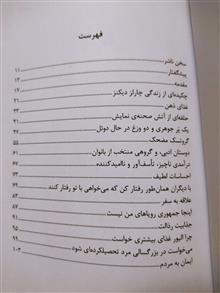 فهرست
سخن ناشر ۱۱
پیشگفتار ۱۳
مقدمه ۱۷
چکیده‌ای از زندگی چارلز دیکنز ۲۱
غذای ذهن ۳۳
حلقه‌ای از آتش صحنه‌ی نمایش
یک پَر جوهری و دو وزغ در حال دوئل
گروتسک مضحک
دوستان ادبی، و گروهی منتخب از بانوان
درآمدی ناچیز، تأسف‌آور و ناامیدکننده
احساسات لطیف
با دیگران همان‌طور رفتار کن که می‌خواهی با تو رفتار کنند
علاقه به سفر
اینجا جمهوری رویاهای من نیست ۸۷
جذابیت رذالت ۹۱
چرا الیور غذای بیشتری خواست ۹۵
می‌خواست در بزرگسالی مرد تحصیلکرده‌ای شود ۹۹
ایمان به مردم ۱۰۳